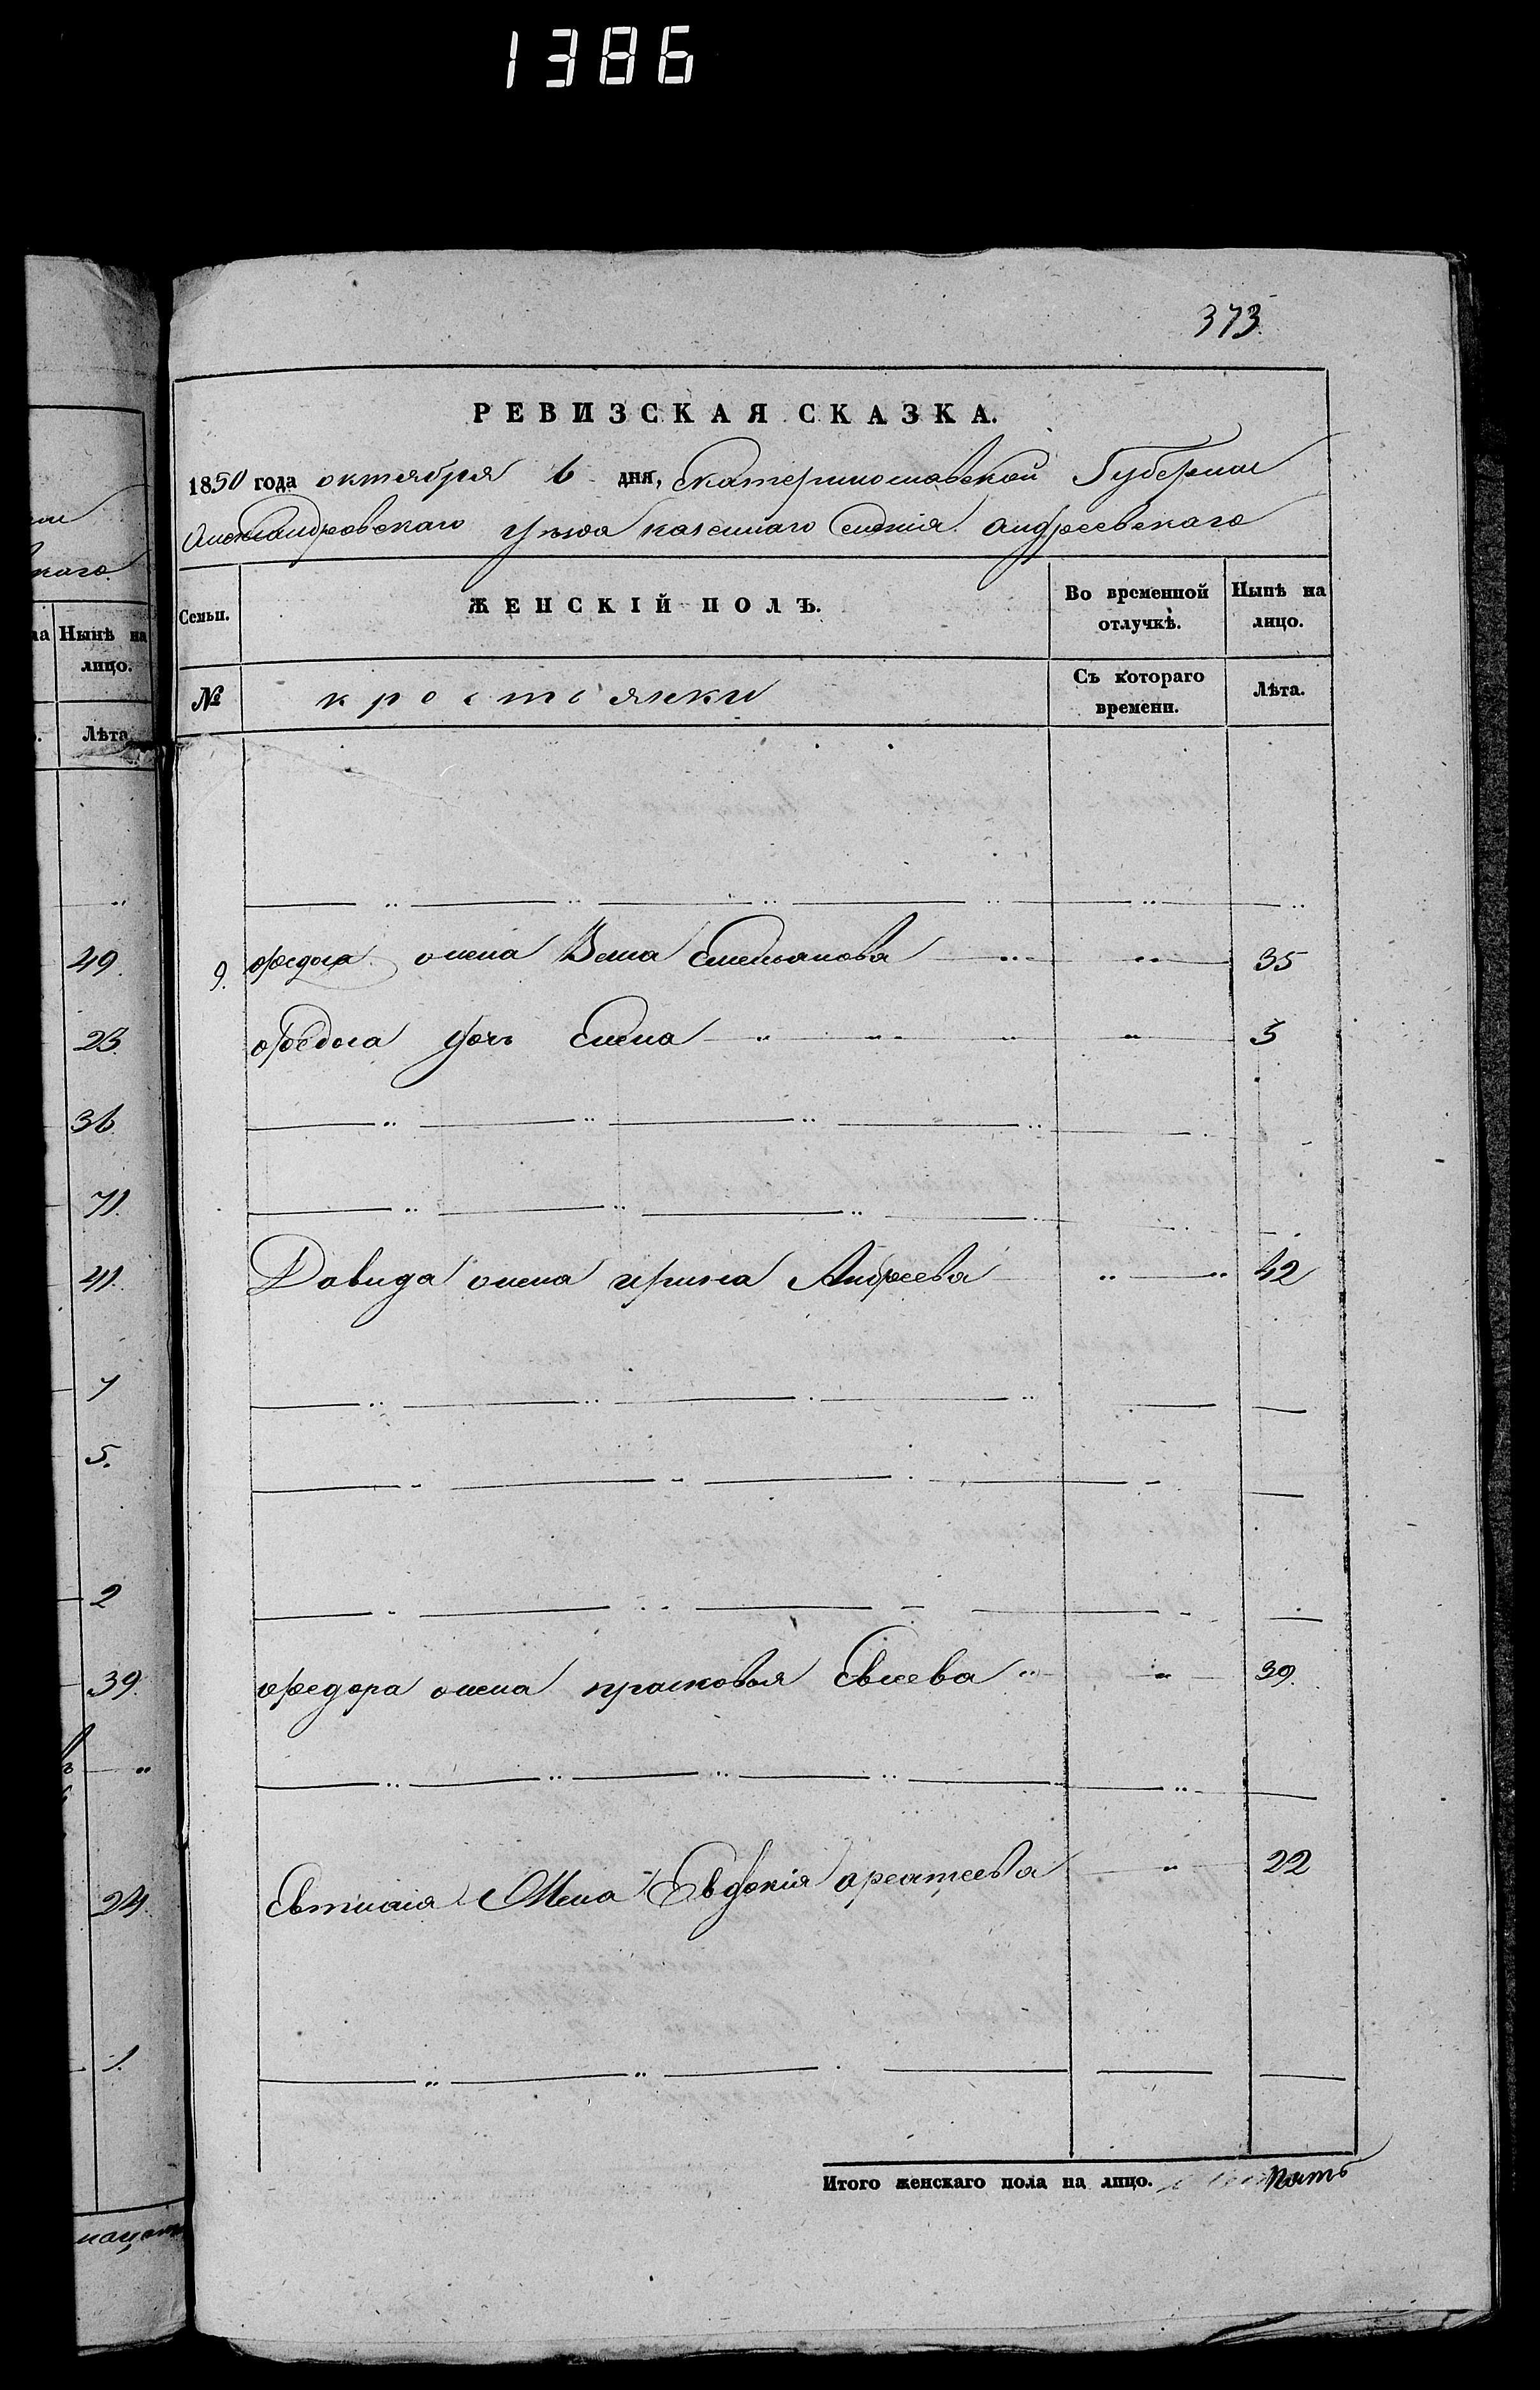 1386
373.
РЕВИЗСКАЯ СКАЗКА.
1850 года октября 6 дня, Екатеринославской Губернии
Александровскаго уѣзда казеннаго селенія андреевскаго
Семьи.
ЖЕНСКІЙ ПОЛЪ.
Во временной отлучкѣ.
Нынѣ на лицо.
№
крестьянки
Съ котораго времени.
Лѣта.
9. жена Емельянова 35
дочь Елена 5
Давида жена ирина Андреева 42
федора жена прасковья Евсеева 39.
жена Евдокія 22
Итого женскаго пола на лицо. пять
Нынѣ на
лицо.
Лѣта
49.
23.
36
71.
41.
7
5.
2
39.
24.
1.